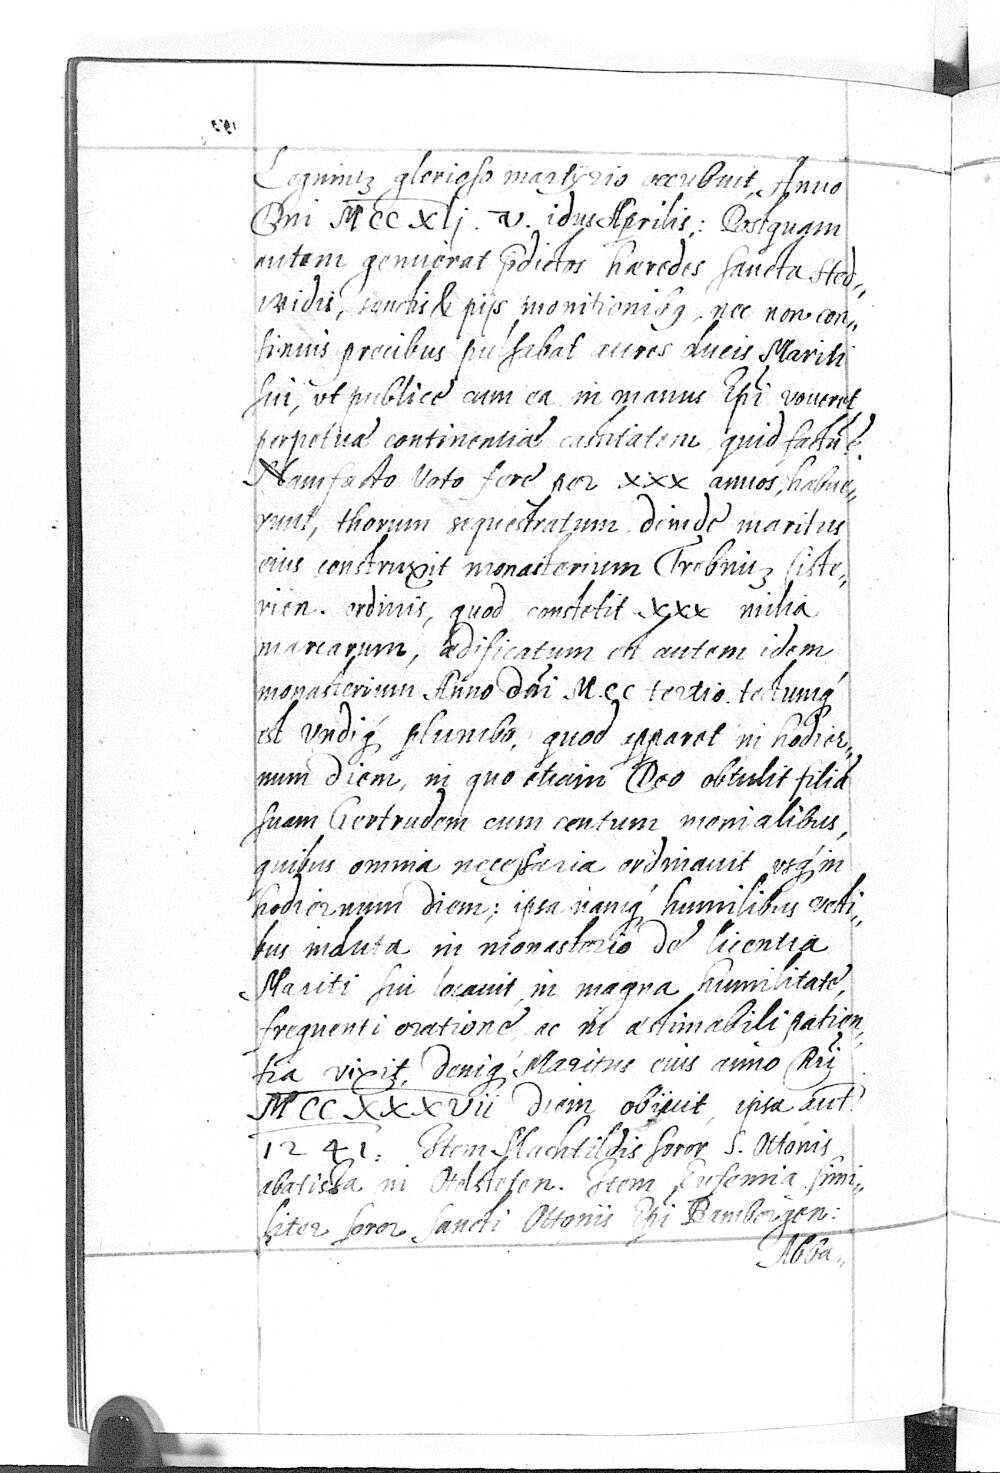 Legnintz glorioso martyrio occubuit, Anno
Dni MCCXLj. V. idus Aprilis: Postquam
autem genuerat p̄dictos hæredes sancta Hed„
vvidis, sanctis & pijs monitionibq nec non con„
tinuis precibus pulsabat aures ducis Mariti
sui, vt publicè cum ea in manus Epi voueret
perpetuā continentiā castitatem quid factū ē.
Nam facto Voto ferè per XXX annos, habue„
runt, thorum sequestratum deinde maritus
eius construxit monasterium Trebnitz Ciste„
rien. ordinis, quod constetit XXX milia
marcarum, ædificatum est autem idem
monasterium Anno Dni M.CC tertio tectumq́
est Vndiq́ plumbo, quod apparet in hodier„
num Diem, in quo etiam Deo obtulit filiā
suam Gertrudem cum centum monialibus,
quibus omnia necessaria ordinauit vsq́ in
hodiernum diem: ipsa namq́ humilibus vesti„
bus induta in monasterio de licentia
Mariti sui locauit in magna humilitate,
frequenti oratione, ac in æstimabili patien„
tia vixit, deniq́ Maritus eius anno Dni
MCCXXXVii diem obijuit, ipsa aut.
1241. Item Machtildis soror S. Ottonis
abatissa in Otelstesen. Item Eufemia simi„
liter soror sancti Ottonis Epi Bambergen:
Abba„